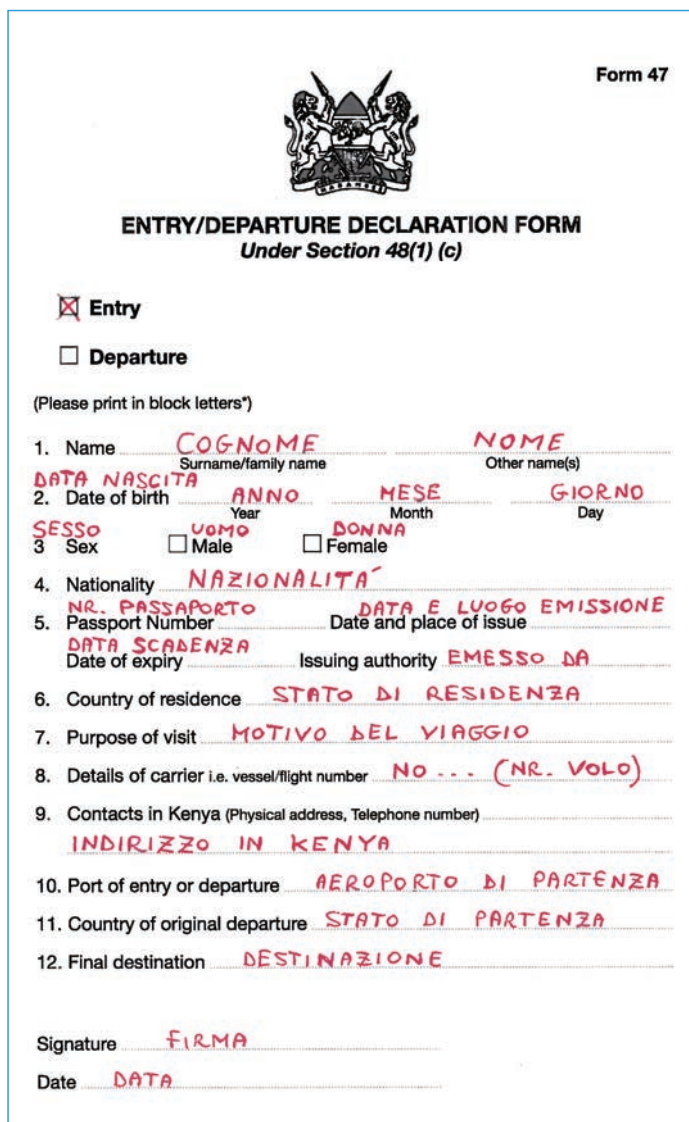 Form 47
HARAMBEE
ENTRY/DEPARTURE DECLARATION FORM
Under Section 48(1) (c)
Entry
Departure
(Please print in block letters*)
1. Name COGNOME NOME
Surname/family name Other name(s)
DATA NASCITA
2. Date of birth ANNO MESE GIORNO
Year Month Day
SESSO UOMO DONNA
3 Sex Male Female
4. Nationality NAZIONALITA´
NR. PASSAPORTO DATA E LUOGO EMISSIONE
5. Passport Number Date and place of issue
DATA SCADENZA
Date of expiry Issuing authority EMESSO DA
6. Country of residence STATO DI RESIDENZA
7. Purpose of visit MOTIVO DEL VIAGGIO
8. Details of carrier i.e. vessel/flight number NO... (NR. VOLO)
9. Contacts in Kenya (Physical address, Telephone number)
INDIRIZZO IN KENYA
10. Port of entry or departure AEROPORTO DI PARTENZA
11. Country of original departure STATO DI PARTENZA
12. Final destination DESTINAZIONE
Signature FIRMA
Date DATA